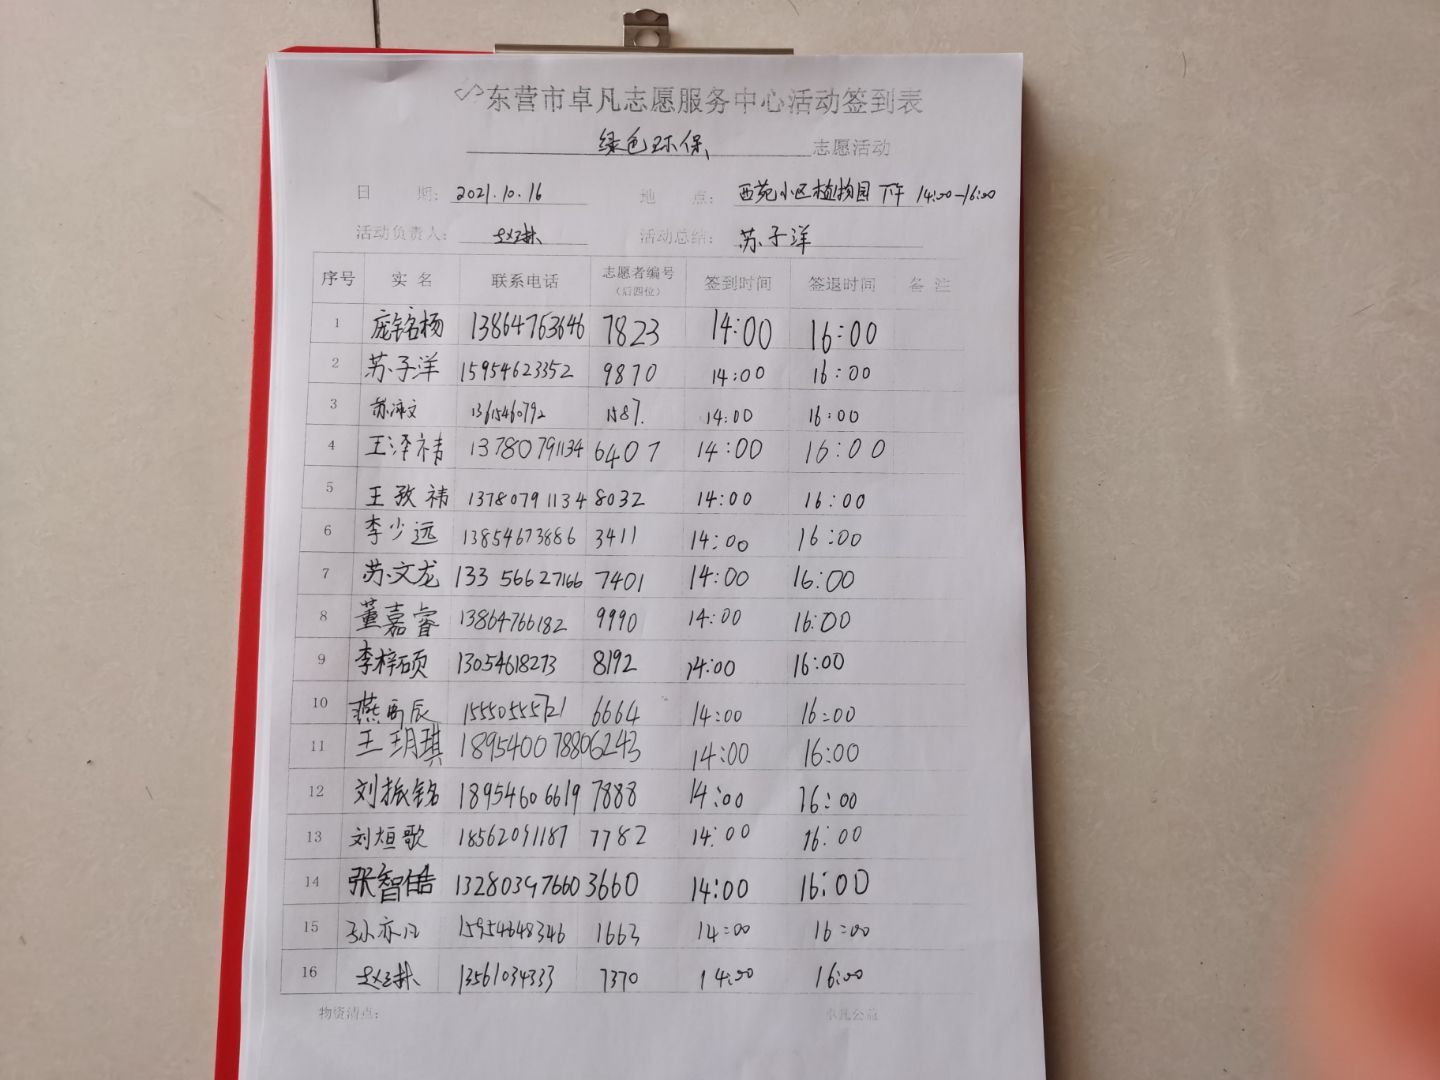 东营市卓凡志愿服务中心活动签到表
绿色环保 志愿活动
日 期: 2021.10.16 地 点: 西苑小区植物园 下午 14:00-16:00
活动负责人: 活动总结: 苏子洋
序号 实名 联系电话 志愿者编号(后四位) 签到时间 签退时间 备注
1 庞铭杨 13864763646 7823 14:00 16:00
2 苏子洋 15954623352 9870 14:00 16:00
3 13615460792 1587. 14:00 16:00
4 王泽祎 13780791134 6407 14:00 16:00
5 王孜祎 13780791134 8032 14:00 16:00
6 李少远 13854673886 3411 14:00 16:00
7 苏文龙 13356627166 7401 14:00 16:00
8 董嘉睿 13864766182 9990 14:00 16:00
9 李梓硕 13054618273 8192 14:00 16:00
10 15550555721 6664 14:00 16:00
11 王玥琪 18954007880 6243 14:00 16:00
12 刘振铭 18954606619 7888 14:00 16:00
13 刘烜歌 18562091187 7782 14:00 16:00
14 张智皓 13280347660 3660 14:00 16:00
15 孙亦凡 15954648346 1663 14:00 16:00
16 13561034333 7370 14:00 16:00
物资清点: 卓凡公益